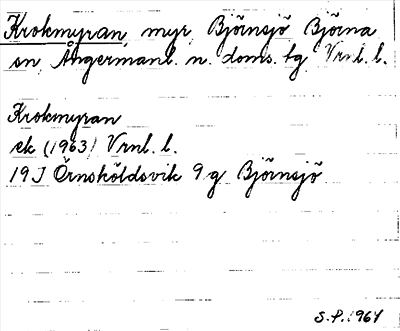 Krokmyran, myr, Björnsjö Björna
sn, Ångermanl. n. doms. tg Vrnl. l.
Krokmyran
ek (1963) Vrnl. l.
19 J Örnsköldsvik 9 g Björnsjö
S.P. 1964